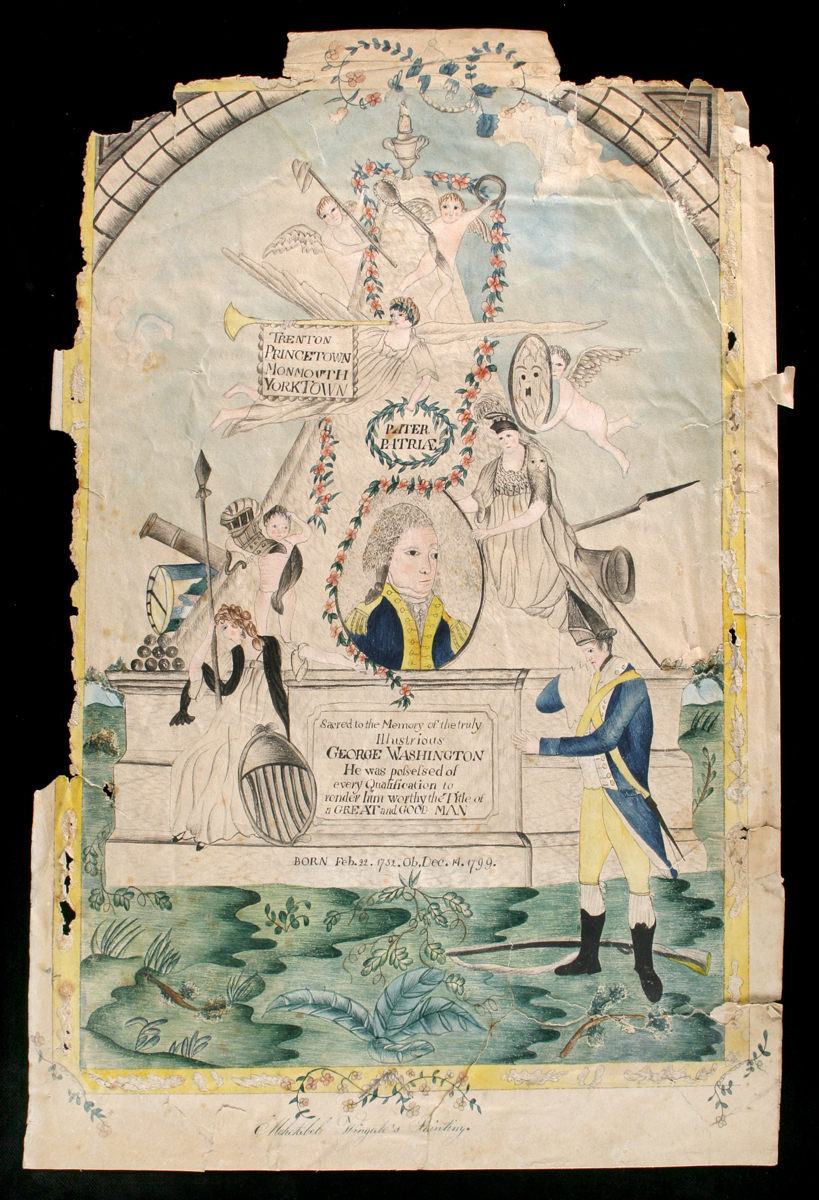 TRENTON
PRINCETOWN
MONMOUTH
YORKTOWN
PATER
PATRIÆ
Sacred to the Memory of the truly
Illustrious
GEORGE WASHINGTON
He was poſseſsed of
every Qualification to
render him worthy the Title of
a GREAT and GOOD MAN
BORN Feb. 22. 1732. Ob. Dec. 14. 1799.
Mehetibele Wingate's Painting.